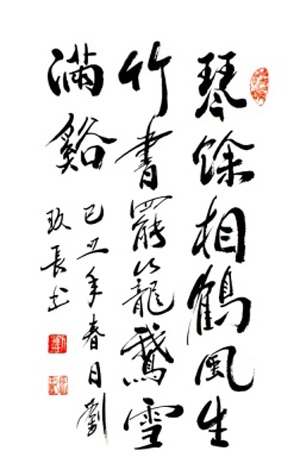 琴馀相鹤风生
竹书罢笼鹅雪
满谿
己丑年春日刘
玫长书